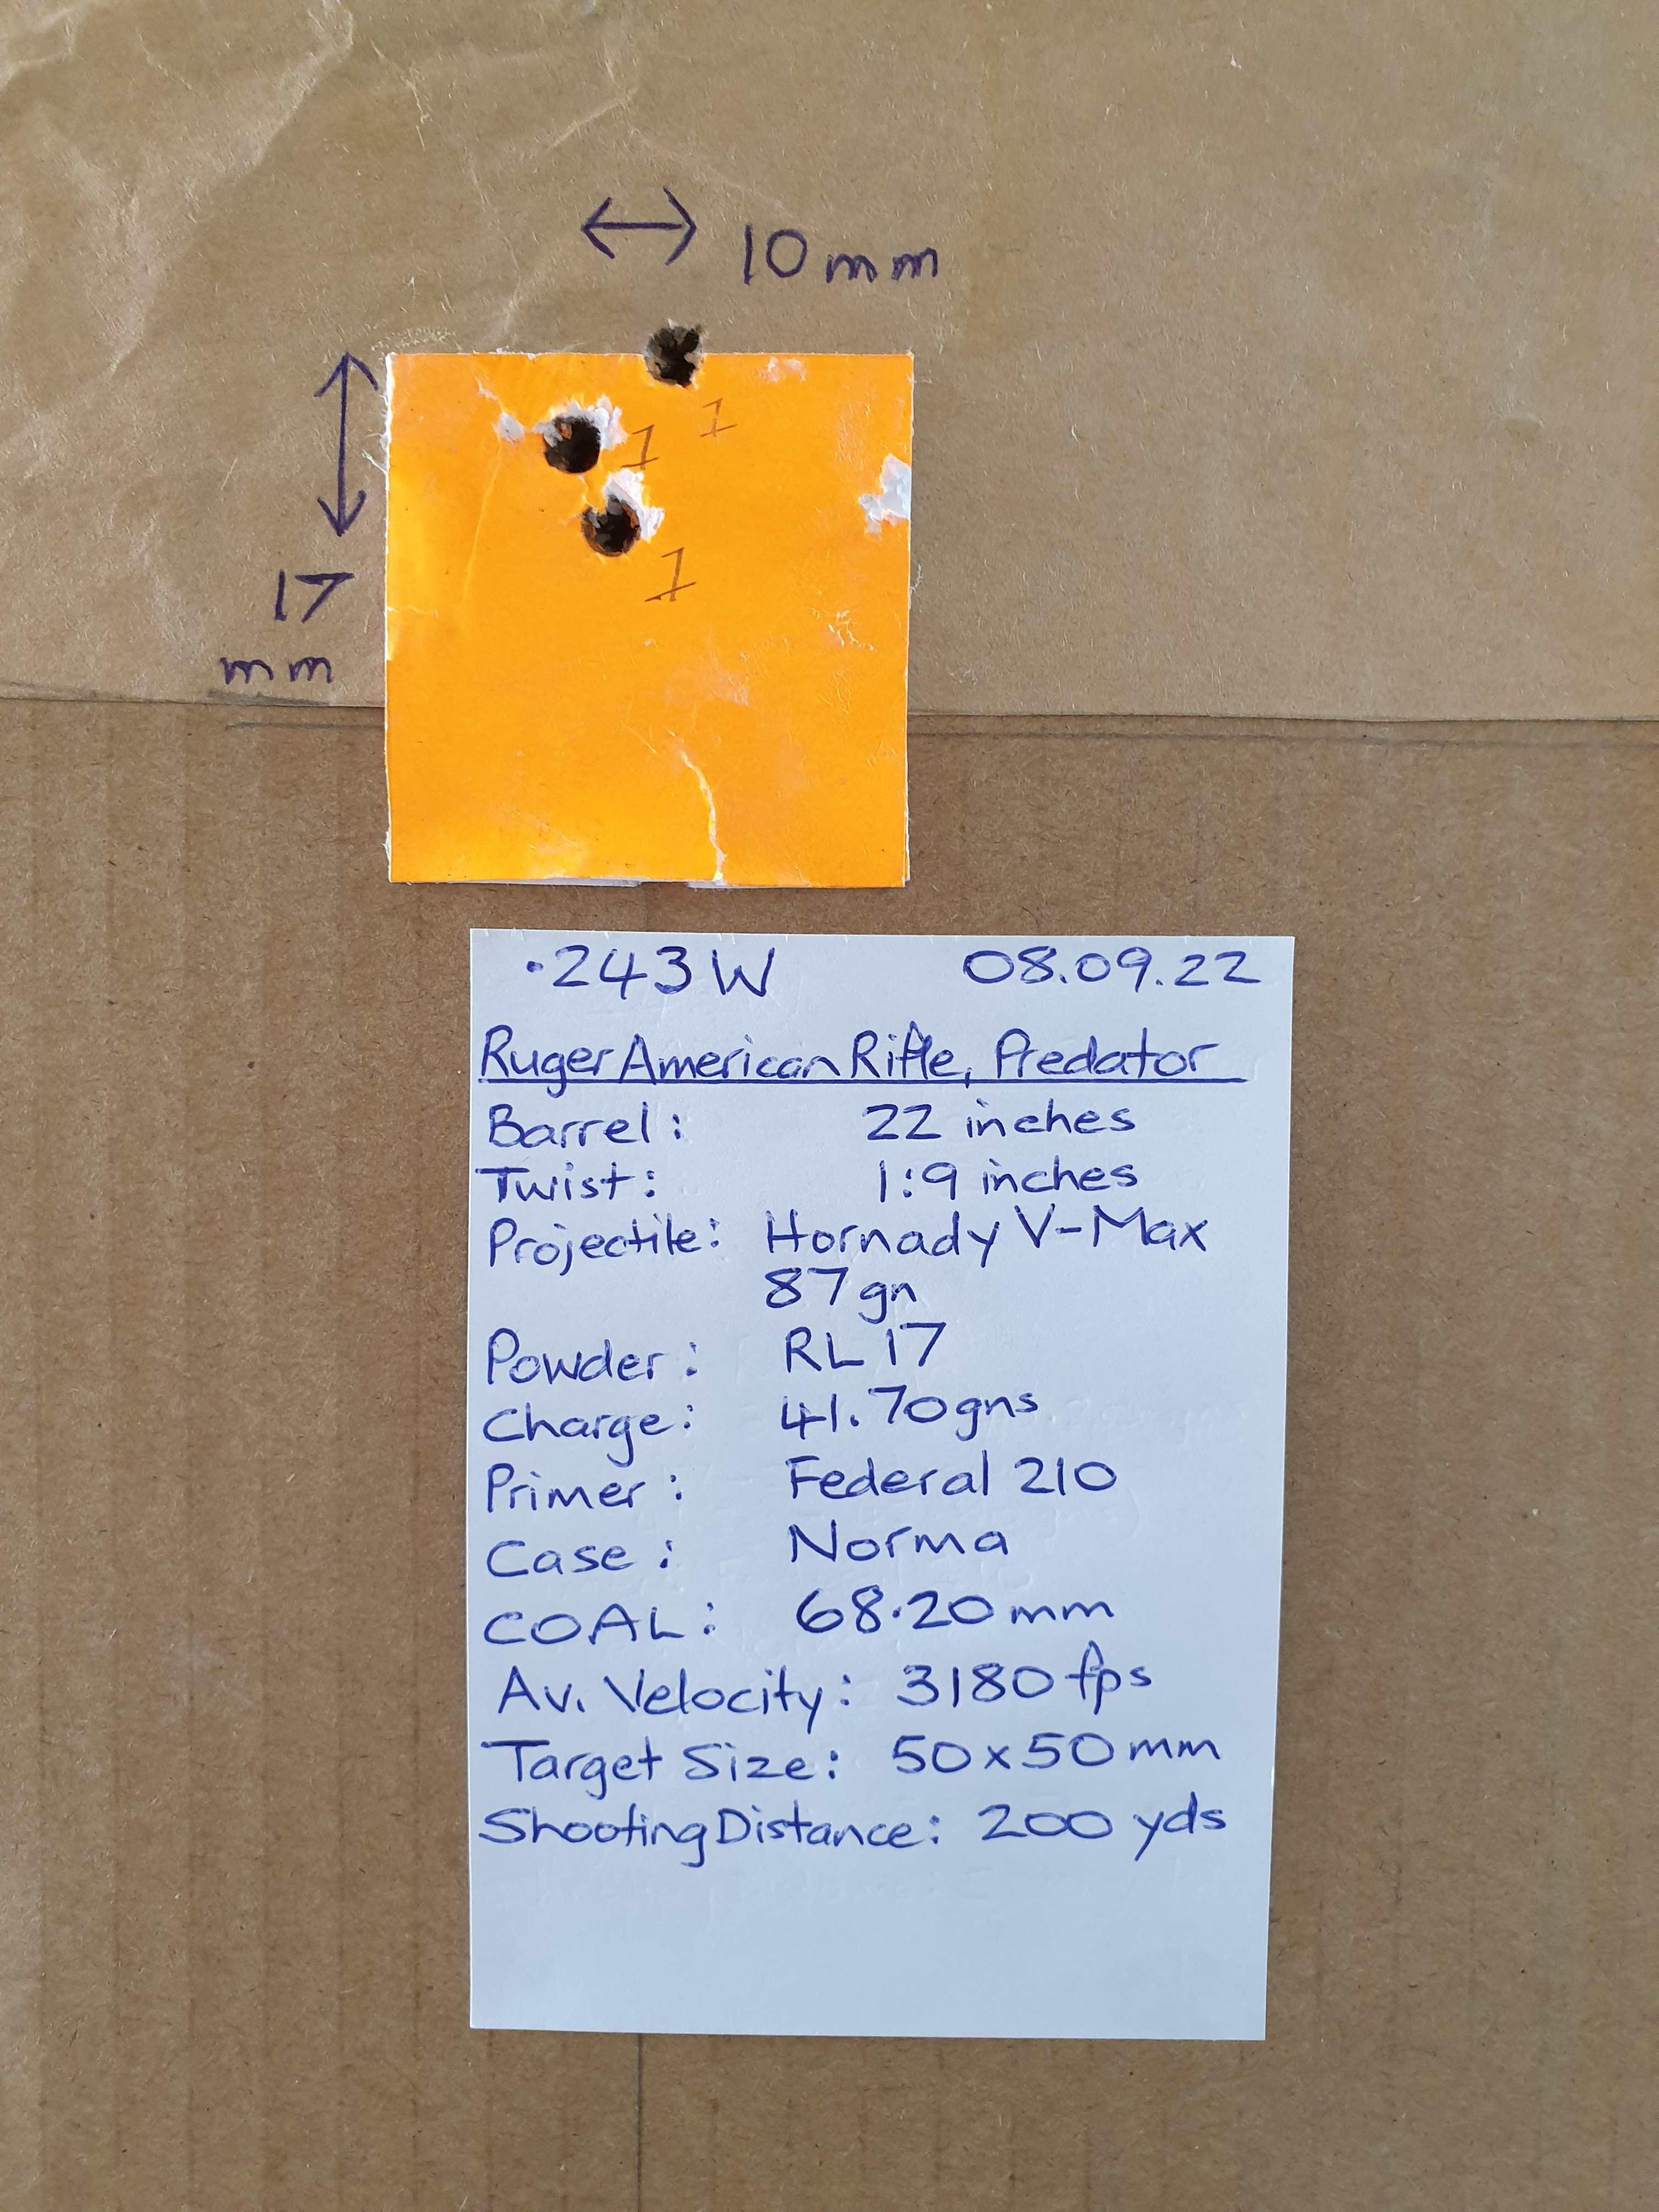 10mm
1
1
1
17
mm
.243W 08.09.22
Ruger American Rifle, Predator
Barrel: 22 inches
Twist: 1:9 inches
Projectile: Hornady V-Max
87gn
Powder: RL17
Charge: 41.70gns
Primer: Federal 210
Case: Norma
COAL: 68.20mm
Av. Velocity: 3180 fps
Target Size: 50x50mm
Shooting Distance: 200 yds